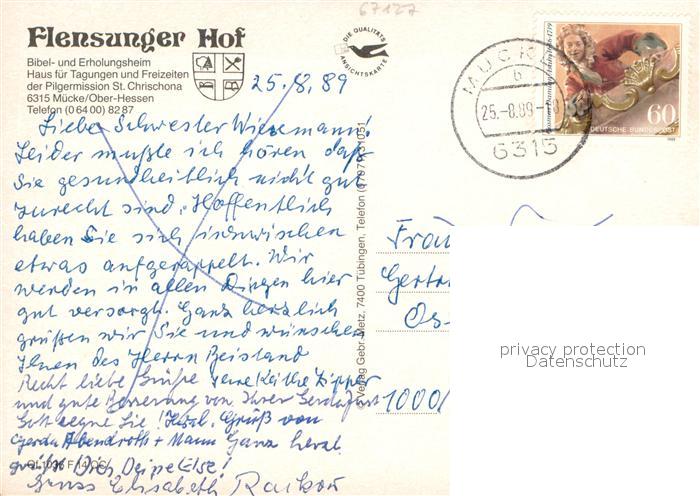 67127
Flensunger Hof
Bibel- und Erholungsheim
Haus für Tagungen und Freizeiten
der Pilgermission St. Chrischona
6315 Mücke/Ober-Hessen
Telefon (0 64 00) 82 87
DIE QUALITÄTS
ANSICHTSKARTE
25.8.89
Liebe Schwester Wiesmann!
Leider mußte ich hören daß
Sie gesundheitlich nicht gut
zurecht sind. Hoffentlich
haben Sie sich inzwischen
etwas aufgerappelt. Wir
werden in allen Dingen hier
gut versorgt. Ganz herzlich
grüßen wir Sie und wünschen
Ihnen des Herrn Beistand
Recht liebe Grüße Ihre Käthe
und gute Besserung von Ihrer
Gott segne Sie! Herzl. Grüß von
Gerda Abendroth + Mann Ganz herzl
grüßt Dich Deine Else!
Gruss Elisabeth
© Verlag Gebr. Metz, 7400 Tübingen, Telefon
MÜCKE
25.-8.89
6315
60
DEUTSCHE BUNDESPOST
Frau
Gertr
Os-
1000/
privacy protection
Datenschutz